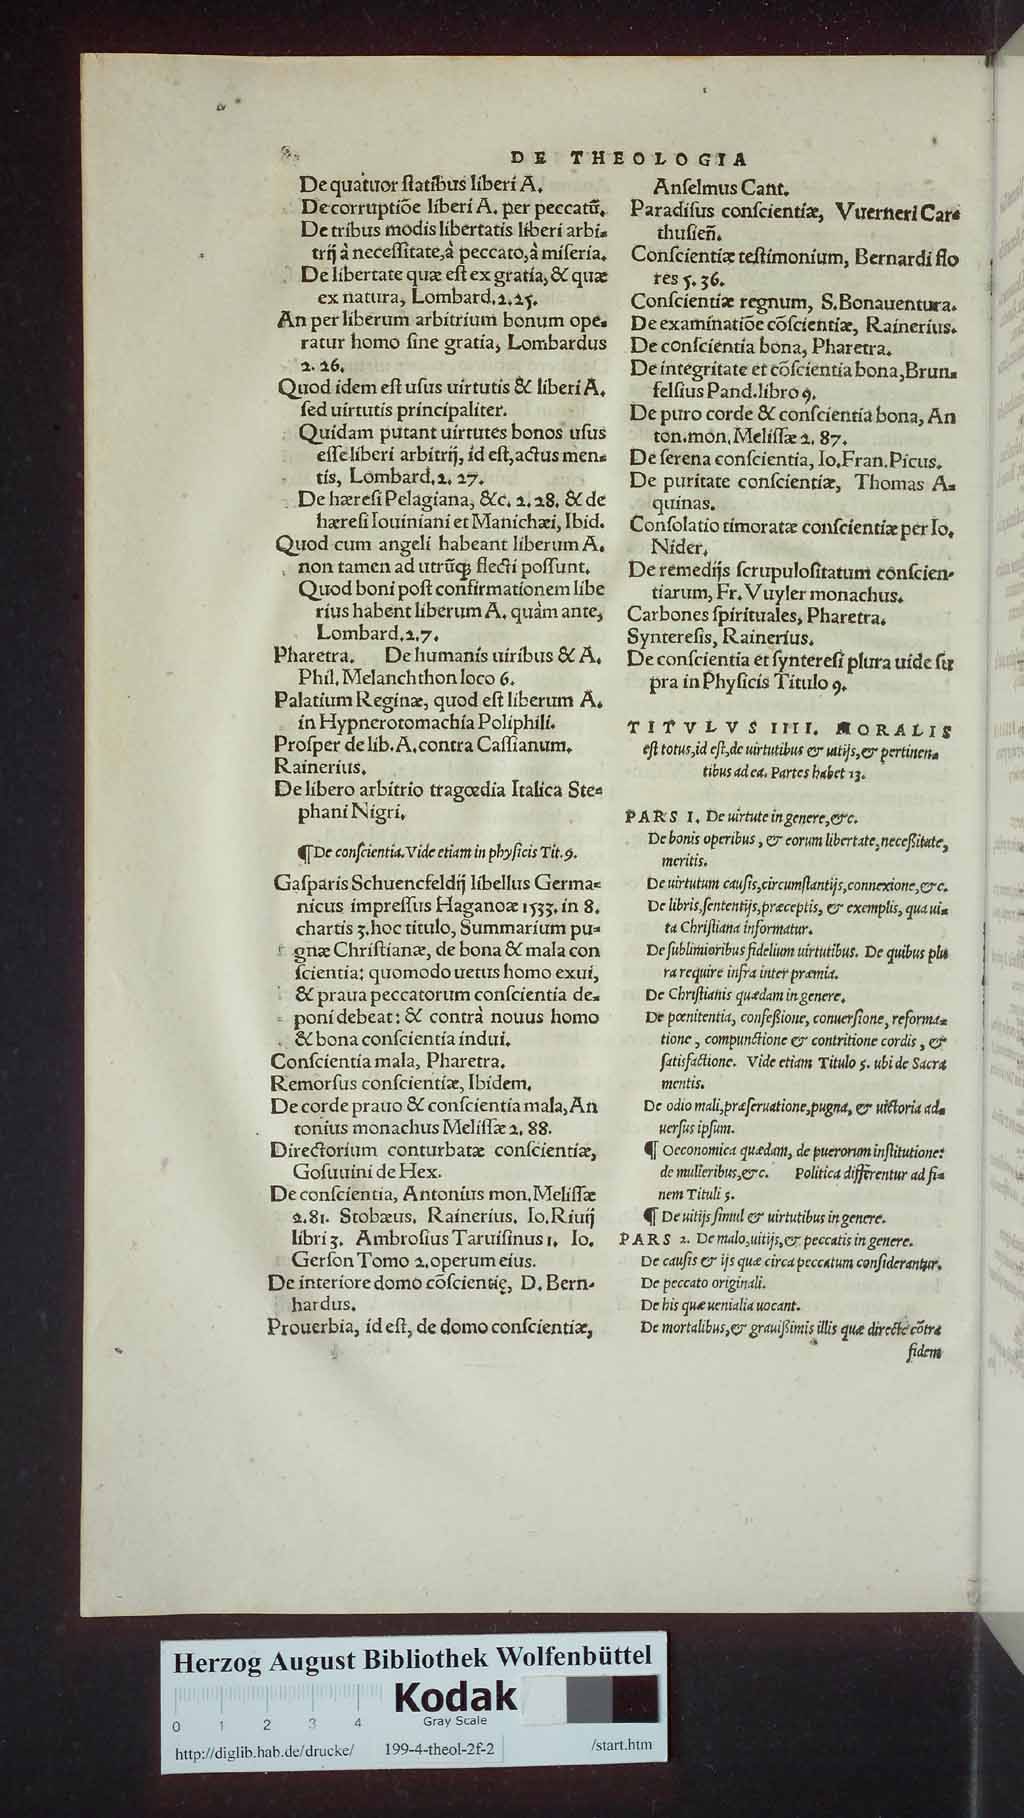 DE THEOLOGIA
De quatuor ſtatibus liberi A.
De corruptiõe liberi A. per peccatũ.
De tribus modis libertatis liberi arbi-
trij à neceſſitate, à peccato, à miſeria.
De libertate quæ eſt ex gratia, & quæ
ex natura, Lombard. 2. 25.
An per liberum arbitrium bonum ope-
ratur homo ſine gratia, Lombardus
2. 26.
Quod idem eſt uſus uirtutis & liberi A.
ſed uirtutis principaliter.
Quidam putant uirtutes bonos uſus
eſſe liberi arbitrij, id eſt, actus men-
tis, Lombard. 2. 27.
De hæreſi Pelagiana, &c. 2. 28. & de
hæreſi Iouiniani et Manichæi, Ibid.
Quod cum angeli habeant liberum A.
non tamen ad utrũq; flecti poſſunt.
Quod boni poſt confirmationem libe
rius habent liberum A. quàm ante,
Lombard. 2. 7.
Pharetra. De humanis uiribus & A.
Phil. Melanchthon loco 6.
Palatium Reginæ, quod eſt liberum A.
in Hypnerotomachia Poliphili.
Proſper de lib. A. contra Caſſianum.
Rainerius.
De libero arbitrio tragœdia Italica Ste-
phani Nigri.
¶ De conſcientia. Vide etiam in phyſicis Tit. 9.
Gaſparis Schuencfeldij libellus Germa-
nicus impreſſus Haganoæ 1533. in 8.
chartis 3. hoc titulo, Summarium pu-
gnæ Chriſtianæ, de bona & mala con
ſcientia: quomodo uetus homo exui,
& praua peccatorum conſcientia de-
poni debeat: & contrà nouus homo
& bona conſcientia indui.
Conſcientia mala, Pharetra.
Remorſus conſcientiæ, Ibidem.
De corde prauo & conſcientia mala, An
tonius monachus Meliſſæ 2. 88.
Directorium conturbatæ conſcientiæ,
Goſuuini de Hex.
De conſcientia, Antonius mon. Meliſſæ
2. 81. Stobæus. Rainerius. Io. Riuij
libri 3. Ambroſius Taruiſinus 1. Io.
Gerſon Tomo 2. operum eius.
De interiore domo cõſcientię, D. Bern-
hardus.
Prouerbia, id eſt, de domo conſcientiæ,
Anſelmus Cant.
Paradiſus conſcientiæ, Vuerneri Car-
thuſieñ.
Conſcientiæ teſtimonium, Bernardi flo
res 5. 36.
Conſcientiæ regnum, S. Bonauentura.
De examinatiõe cõſcientiæ, Rainerius.
De conſcientia bona, Pharetra.
De integritate et cõſcientia bona, Brun-
felſius Pand. libro 9.
De puro corde & conſcientia bona, An
ton. mon. Meliſſæ 2. 87.
De ſerena conſcientia, Io. Fran. Picus.
De puritate conſcientiæ, Thomas A-
quinas.
Conſolatio timoratæ conſcientiæ per Io.
Nider.
De remedijs ſcrupuloſitatum conſcien-
tiarum, Fr. Vuyler monachus.
Carbones ſpirituales, Pharetra.
Syntereſis, Rainerius.
De conſcientia et ſyntereſi plura uide ſu
pra in Phyſicis Titulo 9.
TITVLVS IIII. MORALIS
eſt totus, id eſt, de uirtutibus & uitijs, & pertinen-
tibus ad ea. Partes habet 13.
PARS 1. De uirtute in genere, &c.
De bonis operibus, & eorum libertate, neceßitate,
meritis.
De uirtutum cauſis, circumſtantijs, connexione, &c.
De libris, ſententijs, præceptis, & exemplis, qua ui-
ta Chriſtiana informatur.
De ſublimioribus fidelium uirtutibus. De quibus plu
ra require infra inter præmia.
De Chriſtianis quædam in genere.
De pœnitentia, confeßione, conuerſione, reforma-
tione, compunctione & contritione cordis, &
ſatisfactione. Vide etiam Titulo 5. ubi de Sacra
mentis.
De odio mali, præſeruatione, pugna, & uictoria ad-
uerſus ipſum.
¶ Oeconomica quædam, de puerorum inſtitutione:
de mulieribus, &c. Politica differentur ad fi-
nem Tituli 5.
¶ De uitijs ſimul & uirtutibus in genere.
PARS 2. De malo, uitijs, & peccatis in genere.
De cauſis & ijs quæ circa peccatum conſiderantur.
De peccato originali.
De his quæ uenialia uocant.
De mortalibus, & grauißimis illis quæ directè cõtra
fidem
Herzog August Bibliothek Wolfenbüttel
Kodak
Gray Scale
0 1 2 3 4
http://diglib.hab.de/drucke/ 199-4-theol-2f-2 /start.htm